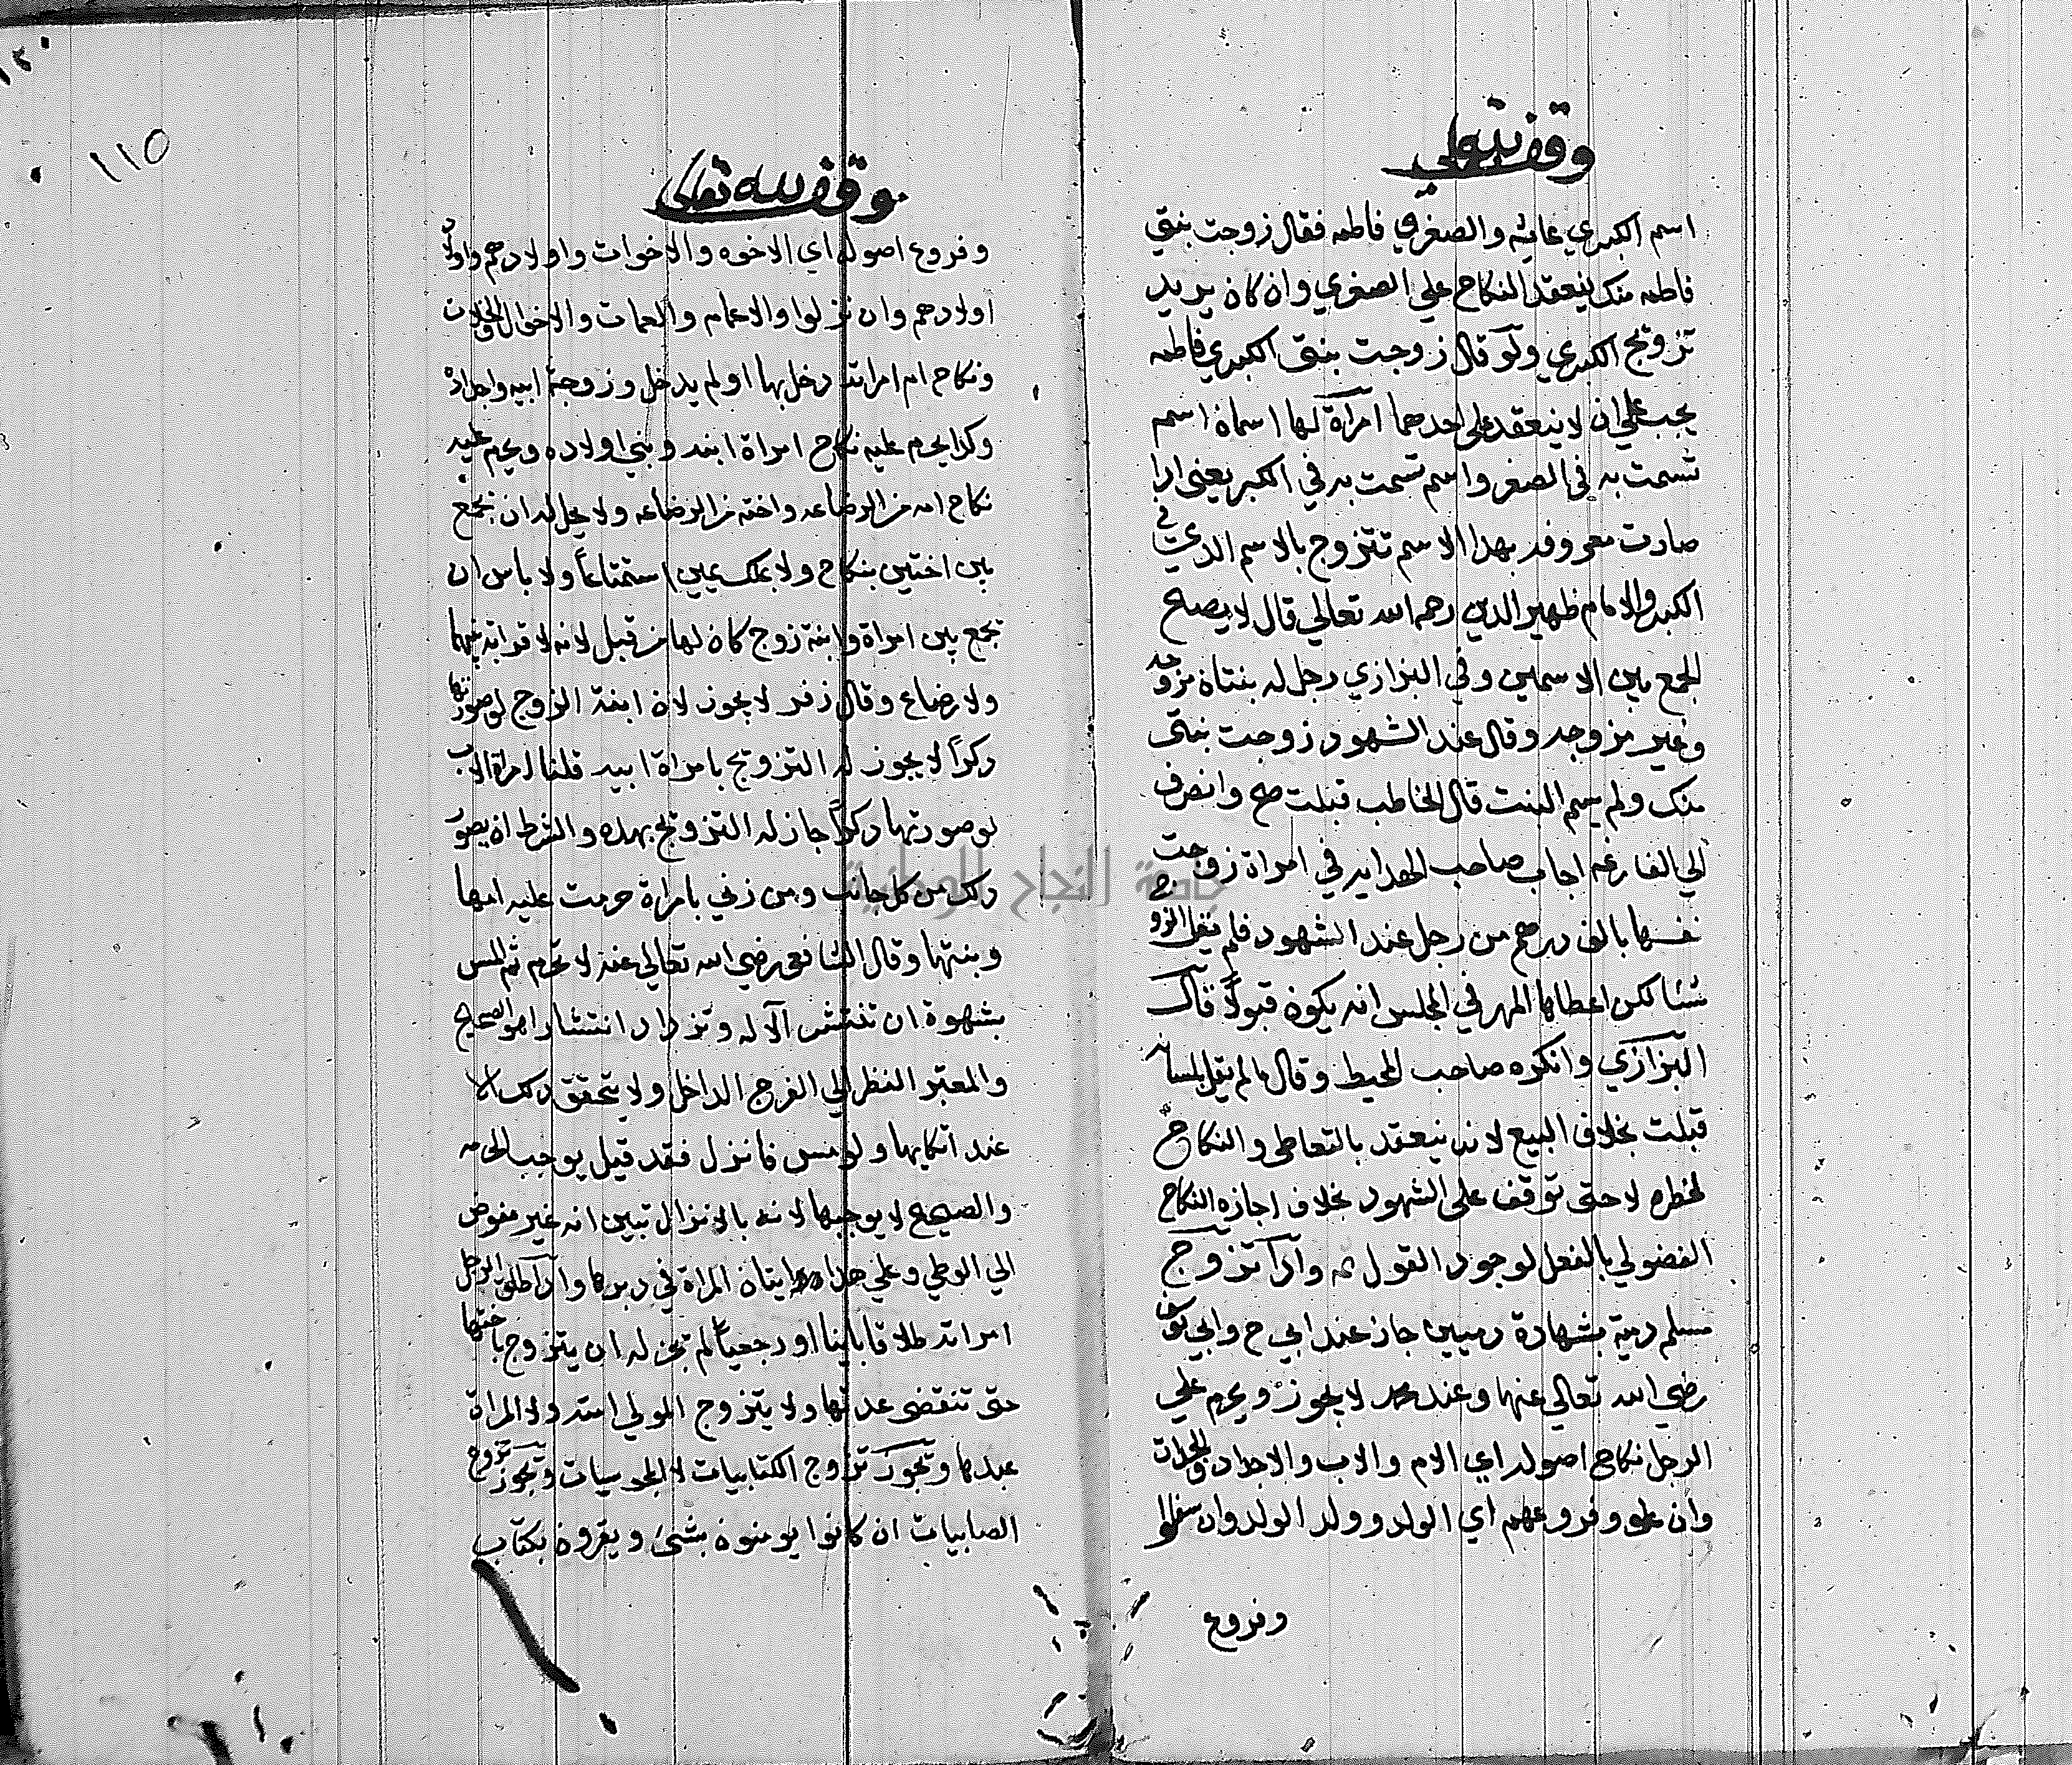 وقف لله تعالى
اسم الكبري عايشه والصغري فاطمه فقال زوجت بنتي
فاطمه منك ينعقد النكاح علي الصغري وان كان يريد
تزويج الكبري ولو قال زوجت بنتي الكبري فاطمه
يجب علي ان لا ينعقد علي احدهما امرآة لها اسمان اسم
تسمت به في الصغر واسم تسمت به في الكبر يعني اذا
صارت معروفه بهذا الاسم تتزوج بالاسم الذي في
الكبر والامام ظهير الدين رحمه الله تعالي قال لا يصح
الجمع بين الاسمين وفي البزازي رجل له بنتان مزوجه
وغير مزوجه وقال عند الشهود زوجت بنتي
منك ولم يسم البنت قال الخاطب قبلت صح وانصرف
الي الفارغه اجاب صاحب الهدايه في امراة زوجت
نفسها بالف درهم من رجل عند الشهود فلم يقل الزوج
شئا لكن اعطاها المهر في المجلس انه يكون قبولاً قال
البزازي وانكره صاحب المحيط وقال ما لم يقل بلسانه
قبلت بخلاف البيع لانه ينعقد بالتعاطي والنكاح
لخطره لا حتي توقف علي الشهود بخلاف اجازه النكاح
الفضولي بالفعل لوجود القول ثمه واذا تزوج
مسلم ذمية بشهادة ذميين جاز عند ابي ح وابي يوسف
رضي الله تعالي عنهما وعند محمد لا يجوز ويحرم علي
الرجل نكاح اصوله اي الام والاب والاجداد والجدات
وان علو وفروعهم اي الولد وولد الولد وان سفلو
وفروع
١١٥
وقف لله تعالى
وفروع اصوله اي الاخوه والاخوات واولادهم واولاد
اولادهم وان نزلوا والاعمام والعمات والاخوال والخالات
ونكاح ام امراته دخل بها او لم يدخل وزوجة ابيه واجداده
وكذا يحرم عليه نكاح امراة ابنه وبني اولاده ويحرم عليه
نكاح امه من الرضاعه واخته من الرضاعه ولا يحل له ان يجمع
بين اختين بنكاح ولا بملك يمين استمتاعاً ولا باس ان
يجمع بين امراة وابنة زوج كان لها من قبل لانه لا قرابه بينهما
ولا رضاع وقال زفر لا يجوز لان ابنة الزوج لو صورتها
ذكراً لا يجوز له التزوج بامراة ابيه قلنا امراة الاب
لو صورتها ذكراً جاز له التزوج بهذه والشرط ان يصور
ذلك من كل جانب ومن زني بامراة حرمت عليه امها
وبنتها وقال الشافعي رضي الله تعالي عنه لا تحرم ثم المس
بشهوة ان تنتشر الآله وتزداد انتشارا هو الصحيح
والمعتبر النظر الي الفرج الداخل ولا يتحقق ذلك الا
عند اتكايها ولو مس فانزل فقد قيل يوجب الحرمه
والصحيح لا يوجبها لانه بالانزال تبين انه غير مفوض
الي الوطي وعلي هذا ايتان المراة في دبرها واذا طلق الرجل
امراته طلاقا باينا او رجعياً لم يجز له ان يتزوج باختها
حتي تنقضي عدتها ولا يتزوج المولي امته ولا المراة
عبدها ويجوز تزوج الكتابيات لا المجوسيات ويجوز تزوج
الصابيات ان كانوا يومنون بشئ ويقرون بكتاب
جامعة النجاح الوطنية